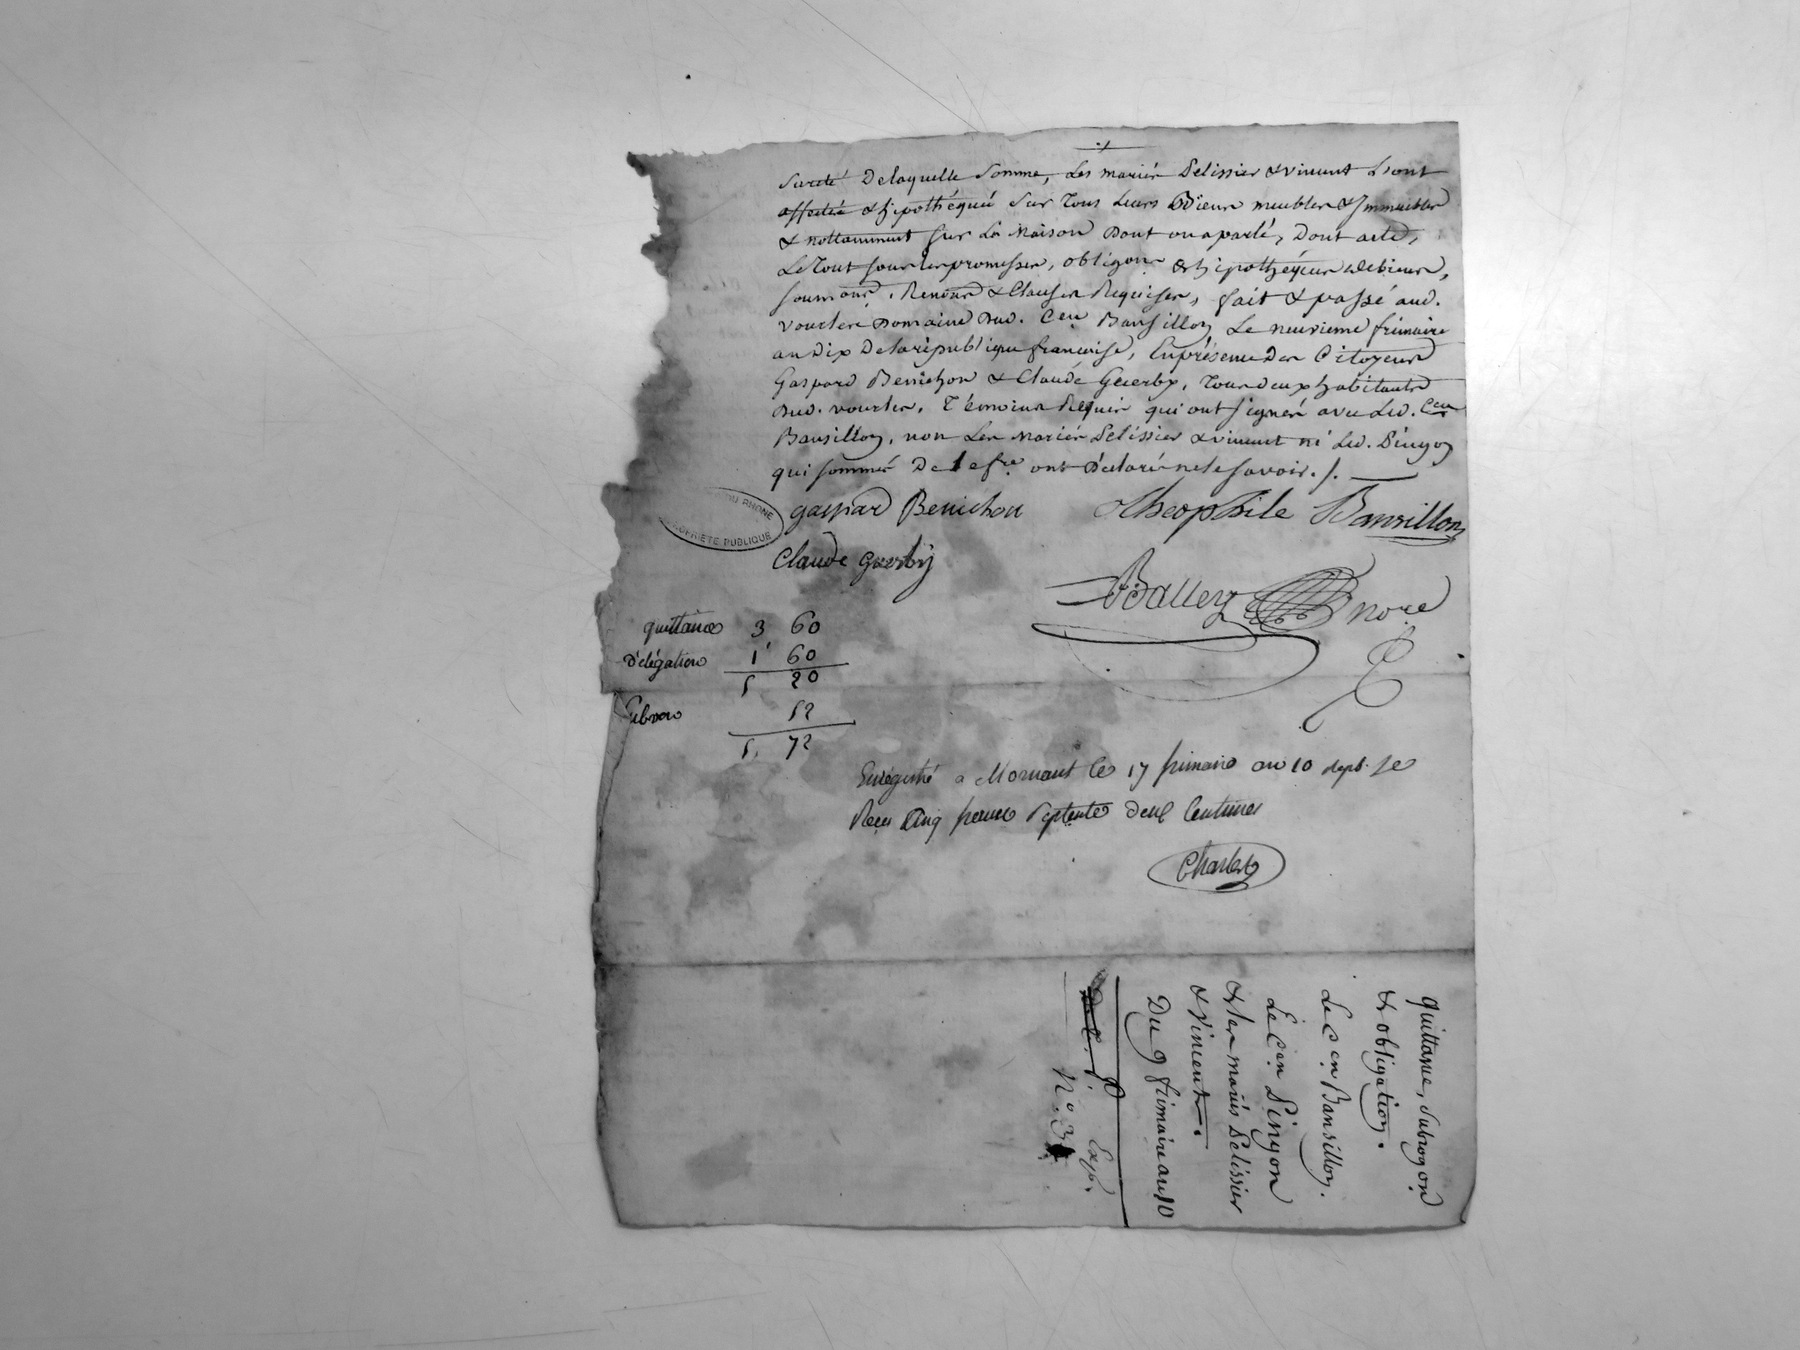 ./.
Sureté De laquelle Somme, Les mariés Pelissier & vincent Seront
affectés & hipothéqués Sur Tous Leurs Biens meubles & Immeubles
& nottamment Sur La Maison Dont on a parlé, Dont acte,
Le Tout sous les promesses, obligons & hipothéques de biens,
Soumions, Renons & Clauses Requises, fait & passé aud.
vourles Domaine Dud. Cen Bansillon Le neuvieme frimaire
an Dix De la république francaise, En présence Des Citoyens
Gaspard Benichon & Claude Guerby, Tous deux habitants
Dud. vourles, Témoins Requis qui ont signés avec Led. Cen
Bansillon, non Les Mariés Pelissier & vincent ni Led. Pingon
qui sommés De le fre ont Déclaré ne le Savoir. /.
DU RHONE
PROPRIETE PUBLIQUE
gaspar Benichon Theophile Bansillon
Claude guerby
Ballery nore
quittance 3 60
Délégation 1 60
5 20
Subvon 52
5. 72
Enregistré a Mornant le 17 frimaire an 10 Repb. se
Reçu Cinq francs Septente deux Centimes
Charles
quittance, Subrogon
& obligation.
Le Cen Bansillon.
Le Cen Pingon
& les mariés Pelissier
& Vincent.
Du 9 frimaire an 10
Exp.
No. 3